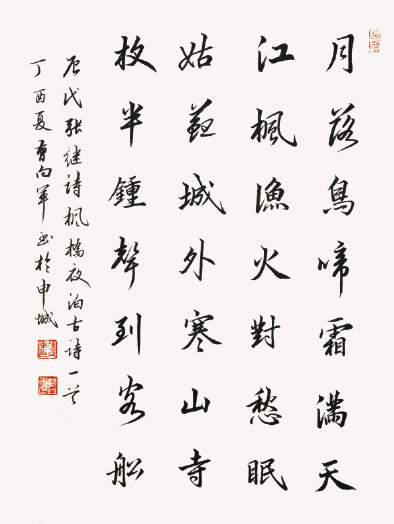 月落烏啼霜滿天
江楓漁火對愁眠
姑蘇城外寒山寺
夜半鍾聲到客船
唐代張继詩楓橋夜泊古詩一首
丁酉夏曹向軍书於申城